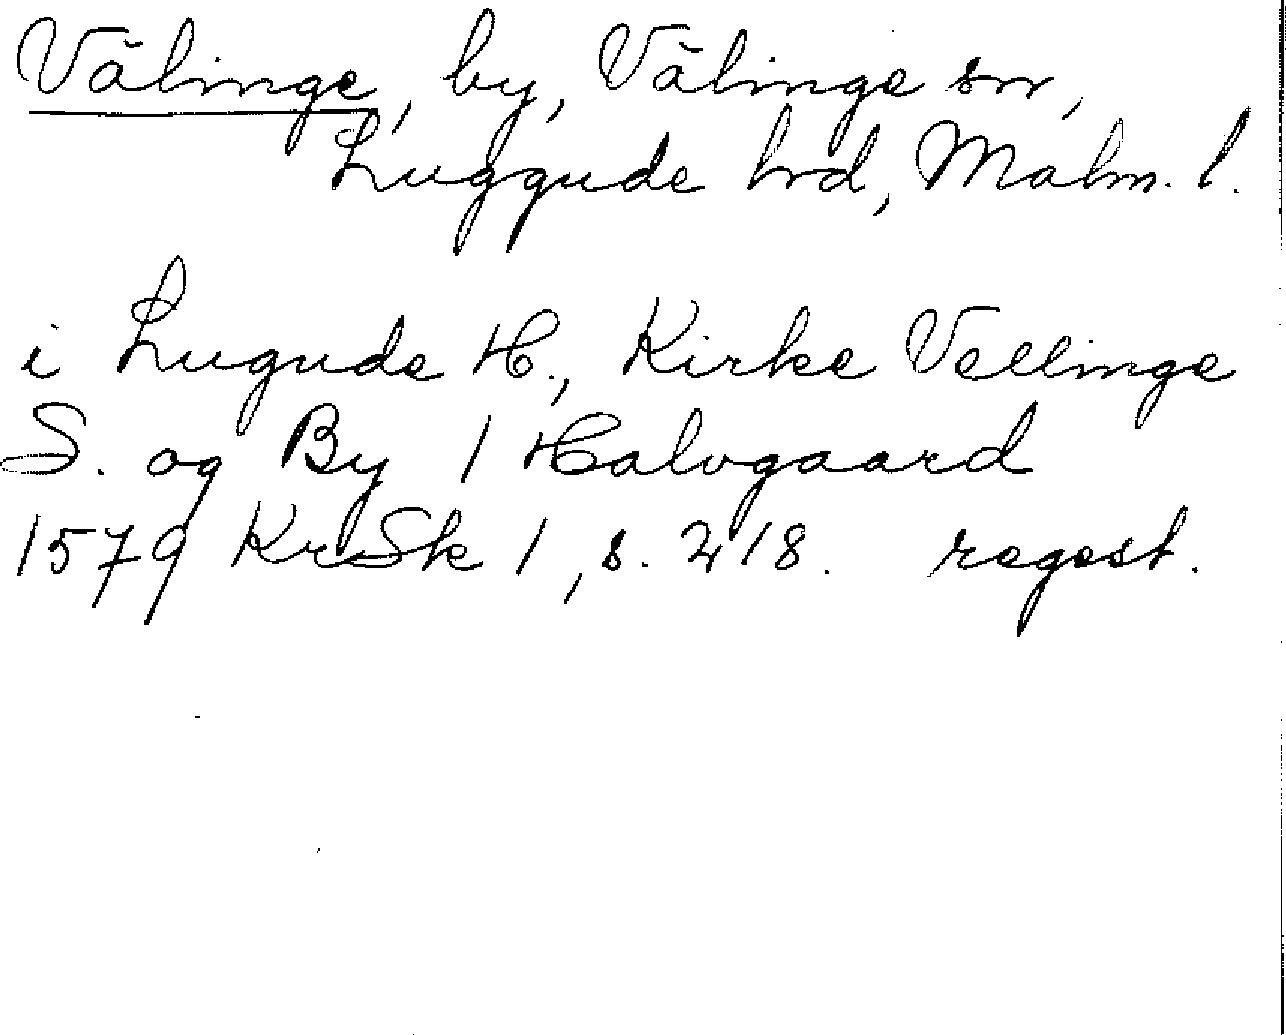 Välinge, by, Välinge sn,
Luggude hrd, Malm. l.
i Lugude H., Kirke Vellinge
S. og By 1 Halvgaard
1579 KrSk 1, s. 218. regest.